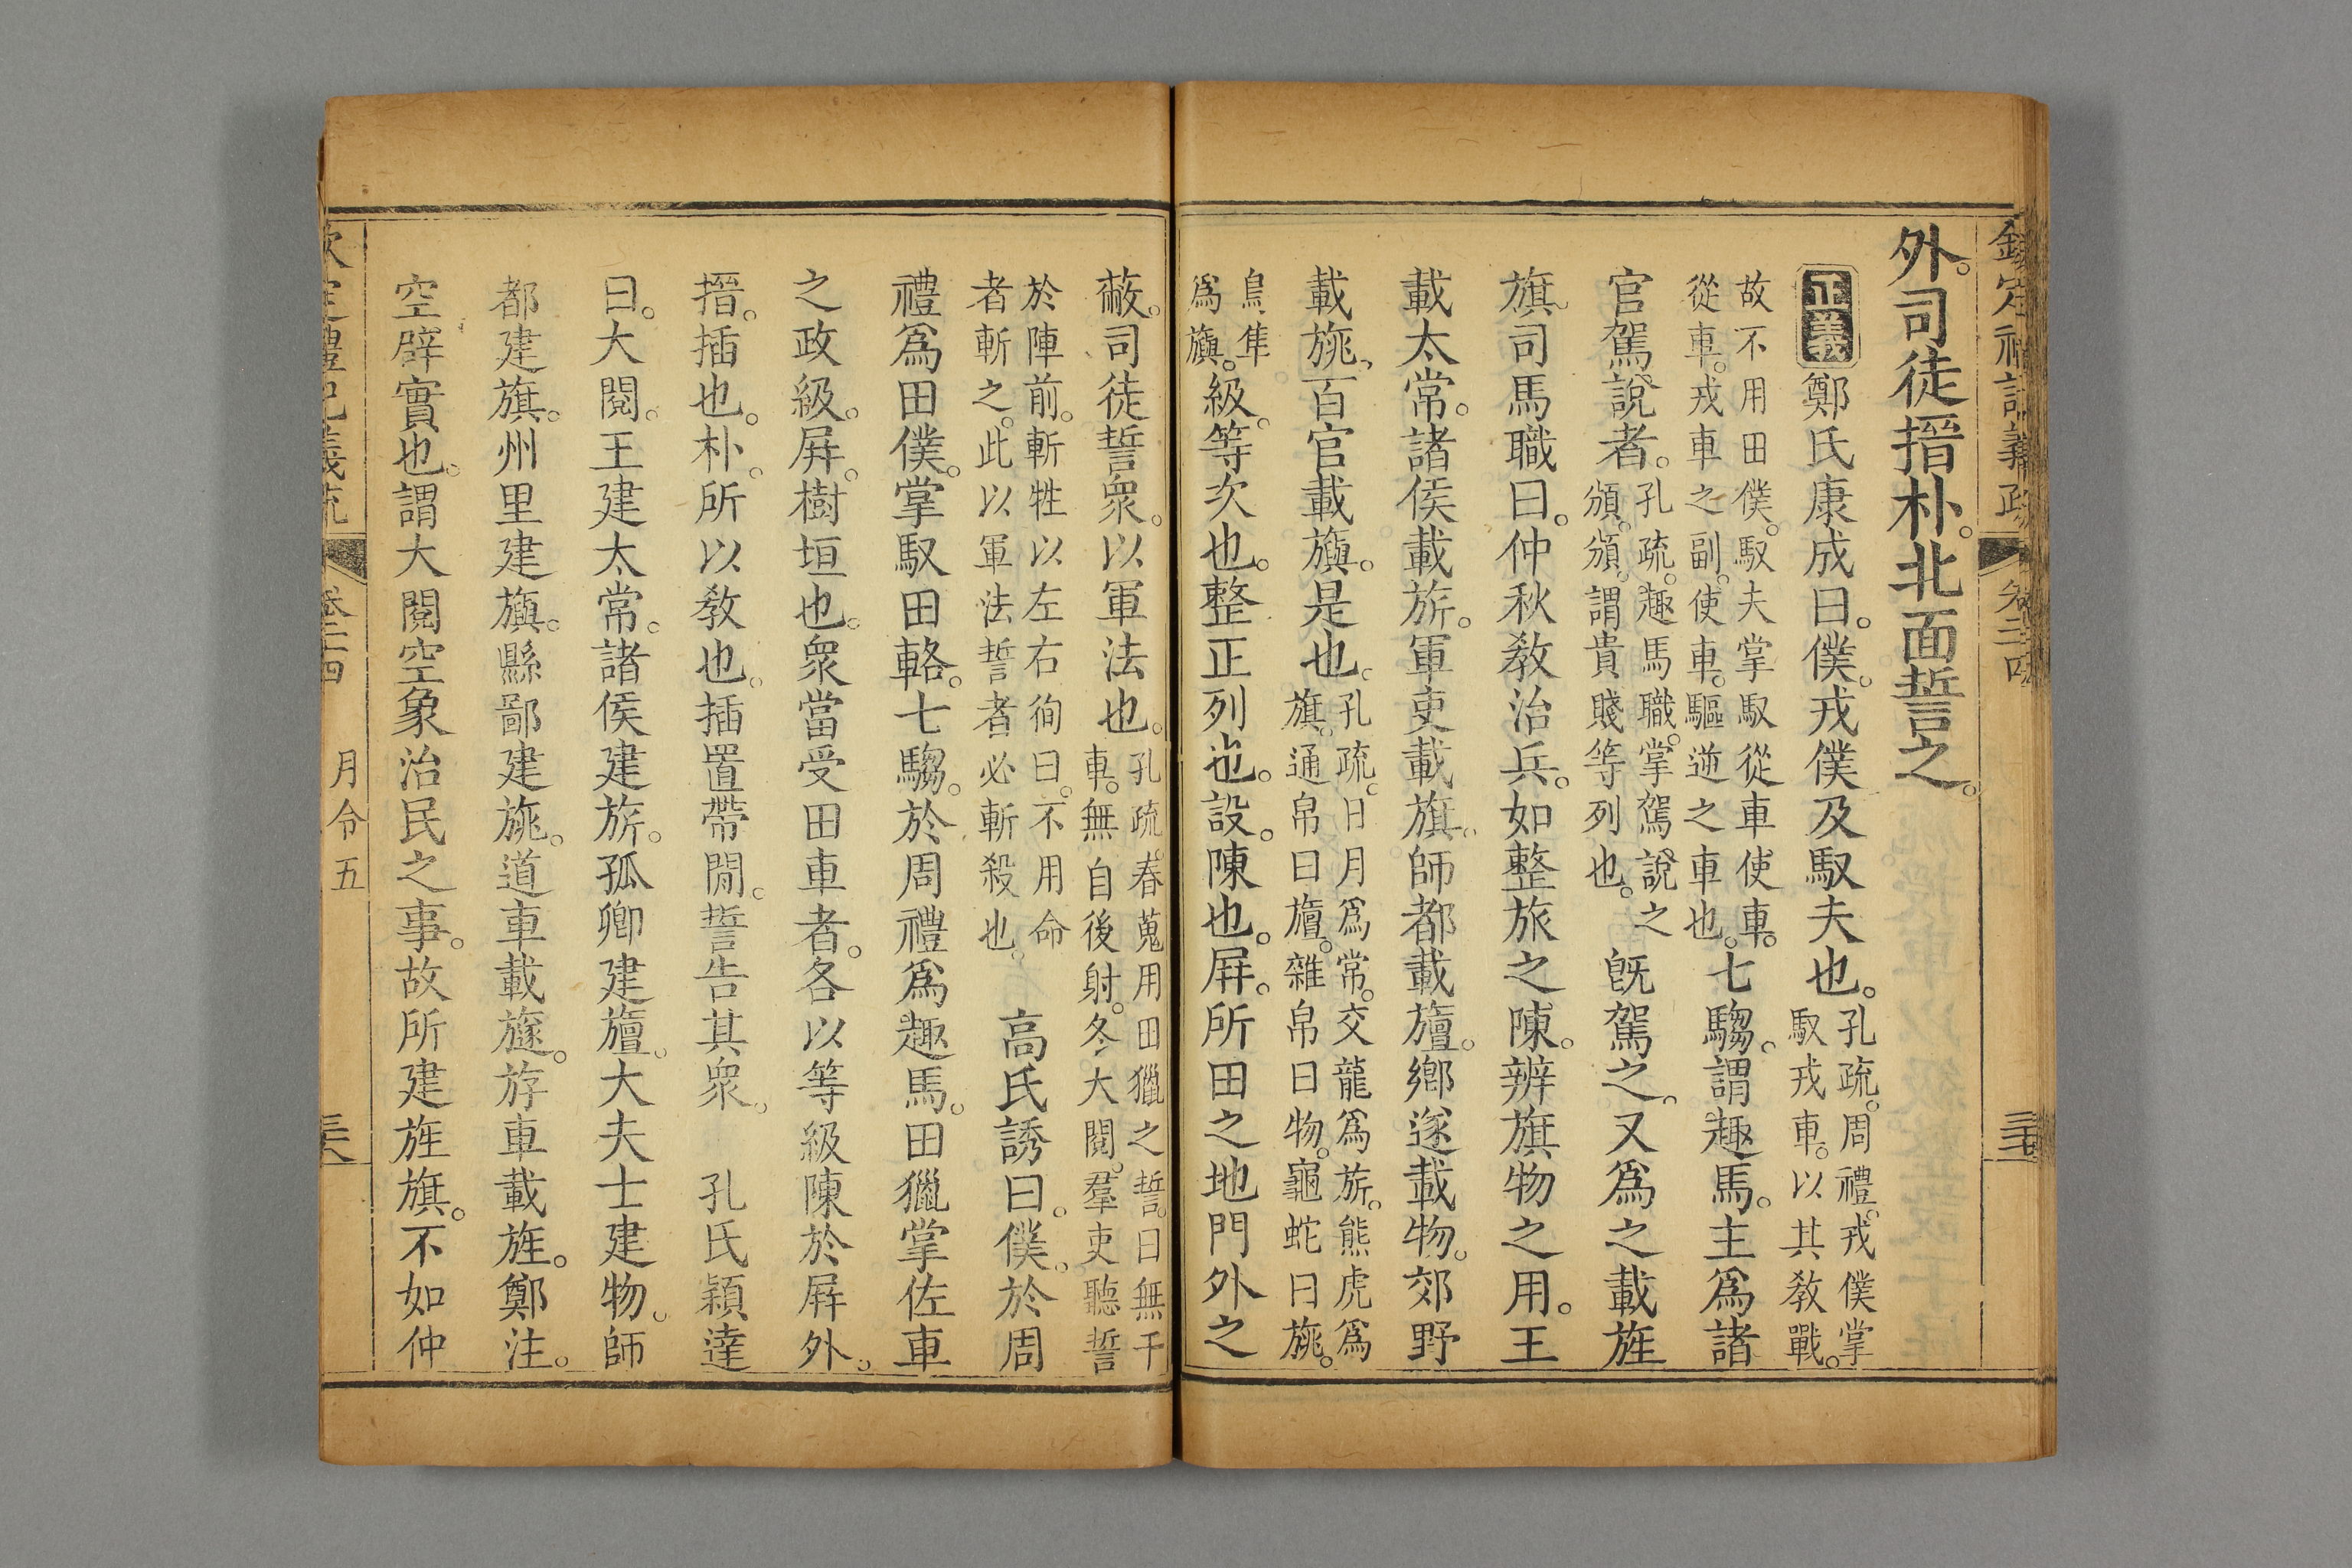 欽定禮記義疏 卷二四
外。司徒搢朴。北面誓之。
正義 鄭氏康成曰。僕。戎僕及馭夫也。孔疏。周禮。戎僕掌
馭戎車。以其教戰。
故不用田僕。馭夫掌馭從車使車。
從車。戎車之副。使車。驅逆之車也。七騶。謂趣馬。主爲諸
官駕說者。孔疏。趣馬職。掌駕說之
頒。頒。謂貴賤等列也。旣駕之。又爲之載旌
旗。司馬職曰。仲秋教治兵。如整旅之陳。辨旗物之用。王
載太常。諸侯載旂。軍吏載旗。師都載旜。鄉遂載物。郊野
載旐。百官載旟。是也。孔疏。日月爲常。交龍爲旂。熊虎爲
旗。通帛曰旜。雜帛曰物。龜蛇曰旐。
鳥隼
爲旟。級。等次也。整。正列也。設。陳也。屏。所田之地門外之
蔽。司徒誓衆。以軍法也。孔疏。春蒐用田獵之誓。曰無干
車。無自後射。冬大閱。羣吏聽誓
於陣前。斬牲以左右徇曰。不用命
者斬之。此以軍法誓者必斬殺也。 高氏誘曰。僕。於周
禮爲田僕。掌馭田輅。七騶。於周禮爲趣馬。田獵掌佐車
之政級。屏。樹垣也。衆當受田車者。各以等級陳於屏外。
搢。插也。朴。所以教也。插置帶間。誓告其衆。 孔氏穎達
曰。大閱。王建太常。諸侯建旂。孤卿建旜。大夫士建物。師
都建旗。州里建旟。縣鄙建旐。道車載旞。斿車載旌。鄭注。
空辟實也。謂大閱空象治民之事。故所建旌旗。不如仲
欽定禮記義疏 卷二四 月令五